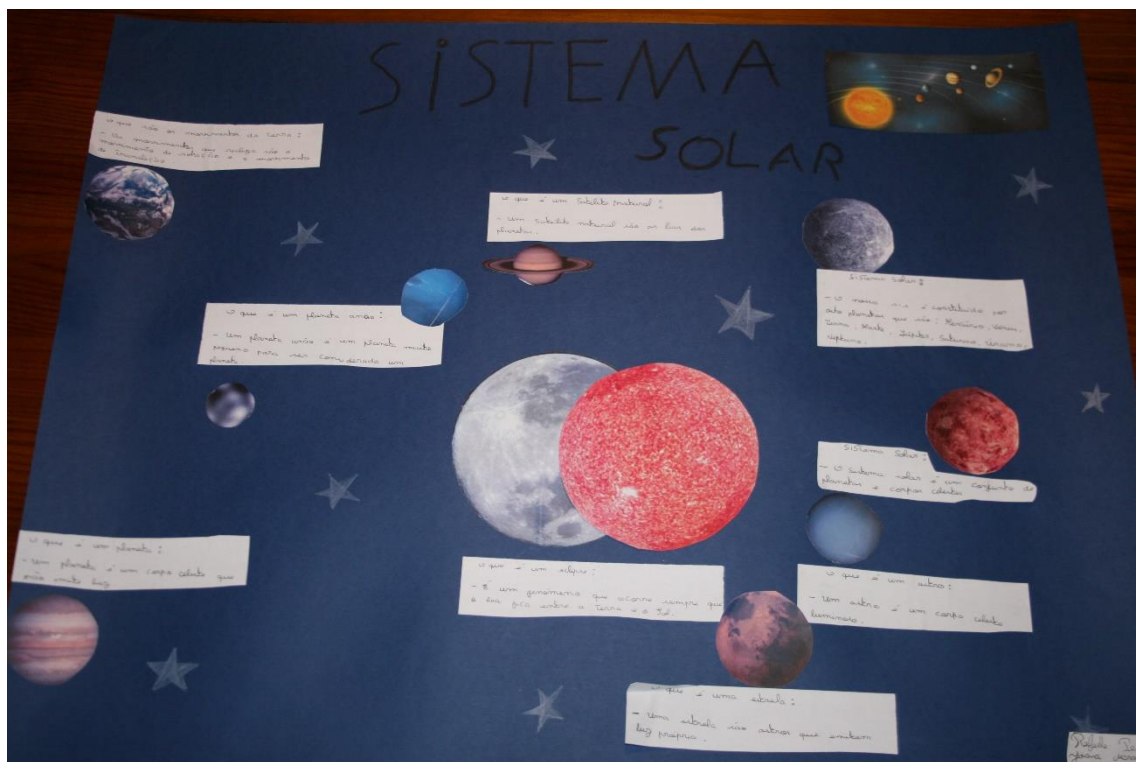 SiSTEMA
SOLAR
O que são os movimentos da terra:
- Os movimentos que realiza são o
movimento de rotação e o movimento
de translação
O que é um Satelite Natural:
- Um satelite natural são as luas dos
planetas.
Sistema Solar:
- O nosso é constituido por
oito planetas que são: Mercúrio, Vénus,
Terra, Marte, Júpiter, Saturno, Úrano,
O que é um planeta anão:
- Um planeta anão é um planeta muito
pequeno para ser considerado um
planeta
Sistema Solar:
- O Sistema solar é um conjunto de
planetas e corpos celestes
O que é um planeta:
- Um planeta é um corpo celeste que
não emite luz
O que é um eclipse:
- É um fenómeno que ocorre sempre que
a lua fica entre a Terra e o Sol.
O que é um astro:
- Um astro é um corpo celeste
luminoso.
O que é uma estrela:
- Uma estrela são astros que emitem
luz própria.